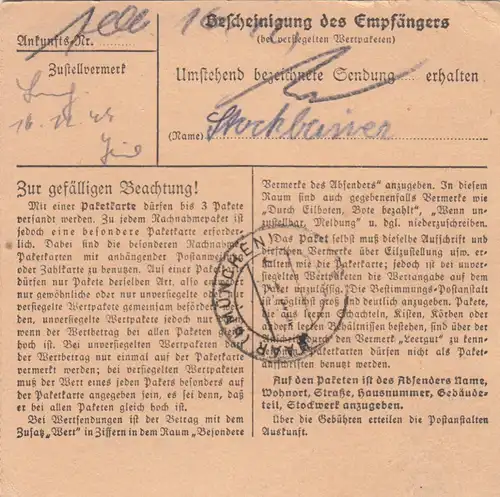 Bescheinigung des Empfängers
(bei versiegelten Wertpaketen)
Ankunfts-Nr.
Zustellvermerk
Umstehend bezeichnete Sendung erhalten
(Name) Stockbauer
Zur gefälligen Beachtung!
Mit einer Paketkarte dürfen bis 3 Pakete
versandt werden. Zu jedem Nachnahmepaket ist
jedoch eine besondere Paketkarte erforder-
lich. Dabei sind die besonderen Nachnahme-
Paketkarten mit anhängender Postanweisung
oder Zahlkarte zu benutzen. Auf eine Paketkarte
dürfen nur Pakete derselben Art, also entweder
nur gewöhnliche oder nur unversiegelte oder nur
versiegelte Wertpakete gemeinsam befördert wer-
den, unversiegelte Wertpakete jedoch nur,
wenn der Wertbetrag bei allen Paketen gleich
hoch ist. Bei unversiegelten Wertpaketen darf
der Wertbetrag nur einmal auf der Paketkarte
vermerkt werden; bei versiegelten Wertpaketen
muß der Wert eines jeden Pakets besonders auf
der Paketkarte angegeben sein, es sei denn, daß
er bei allen Paketen gleich hoch ist.
Bei Wertsendungen ist der Betrag mit dem
Zusatz „Wert“ in Ziffern in dem Raum „Besondere
Vermerke des Absenders“ anzugeben. In diesem
Raum sind auch gegebenenfalls Vermerke wie
„Durch Eilboten, Bote bezahlt“, „Wenn un-
zustellbar, Meldung“ u. dgl. niederzuschreiben.
Das Paket selbst muß dieselbe Aufschrift und
dieselben Vermerke über Eilzustellung usw. er-
halten wie die Paketkarte; jedoch ist bei unver-
siegelten Wertpaketen die Wertangabe auf dem
Paket unzulässig. Die Bestimmungs-Postanstalt
ist möglichst groß und deutlich anzugeben. Pakete,
die aus leeren Schachteln, Kisten, Körben oder
ähnlichen Behältnissen bestehen, sind über der
Aufschrift mit dem Vermerk „Leergut“ zu kenn-
zeichnen. Paketkarten dürfen nicht als Paket-
aufschriften benutzt werden.
Auf den Paketen ist des Absenders Name,
Wohnort, Straße, Hausnummer, Gebäude-
teil, Stockwerk anzugeben.
Über die Gebühren erteilen die Postanstalten
Auskunft.
HAAR (MÜNCHEN)